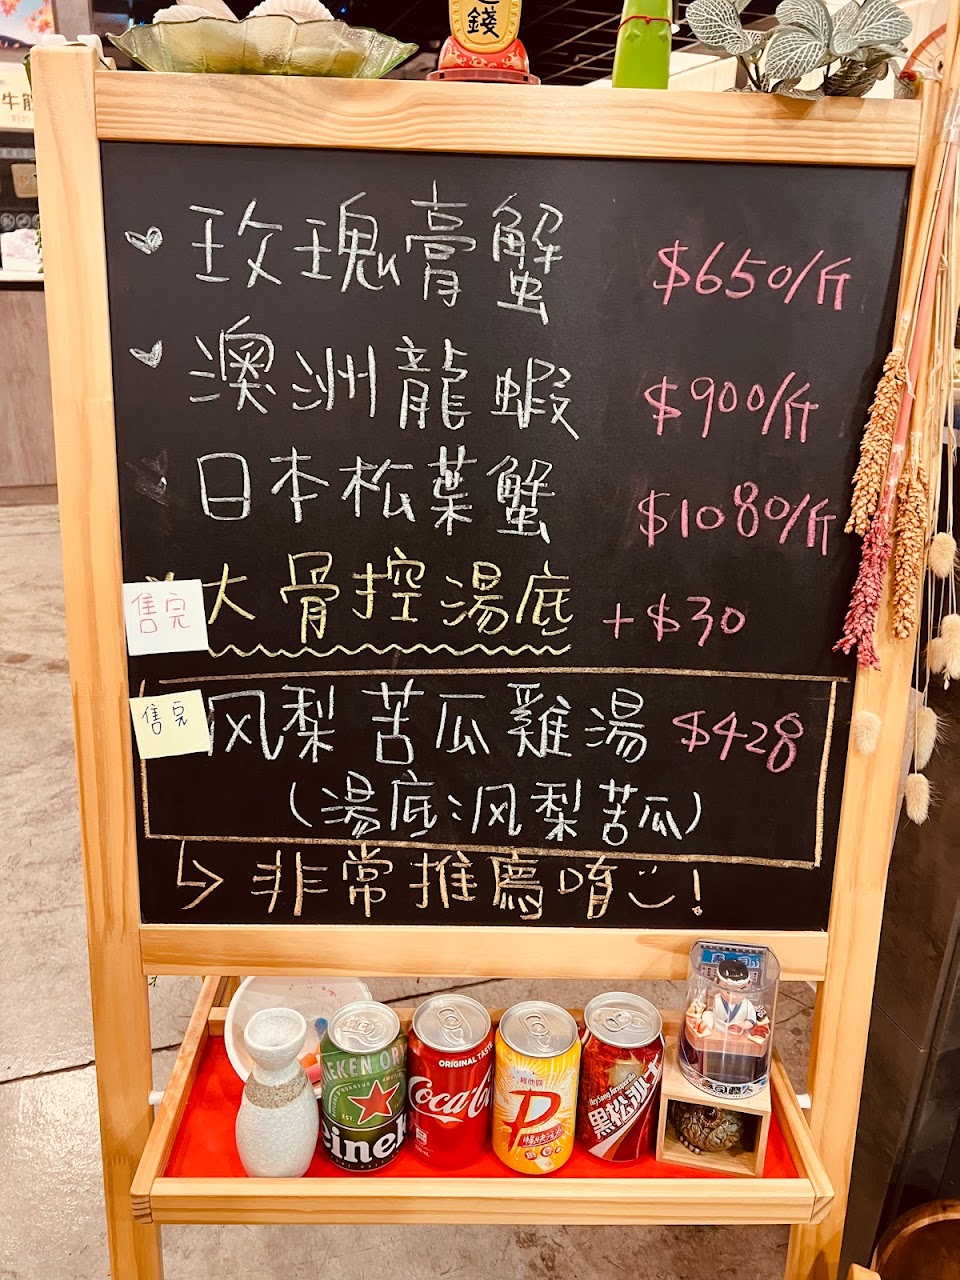 錢
牛
玫瑰膏蟹 $650/斤
澳洲龍蝦 $900/斤
日本松葉蟹 $1080/斤
售完 大骨控湯底 +$30
售完 风梨苦瓜雞湯 $428
(湯底:风梨苦瓜)
非常推薦唷!
ORIGINAL TASTE
Coca-C
維他露
P
HeySong Sarsaparilla
黑松沙士
EKEN OR
eineke